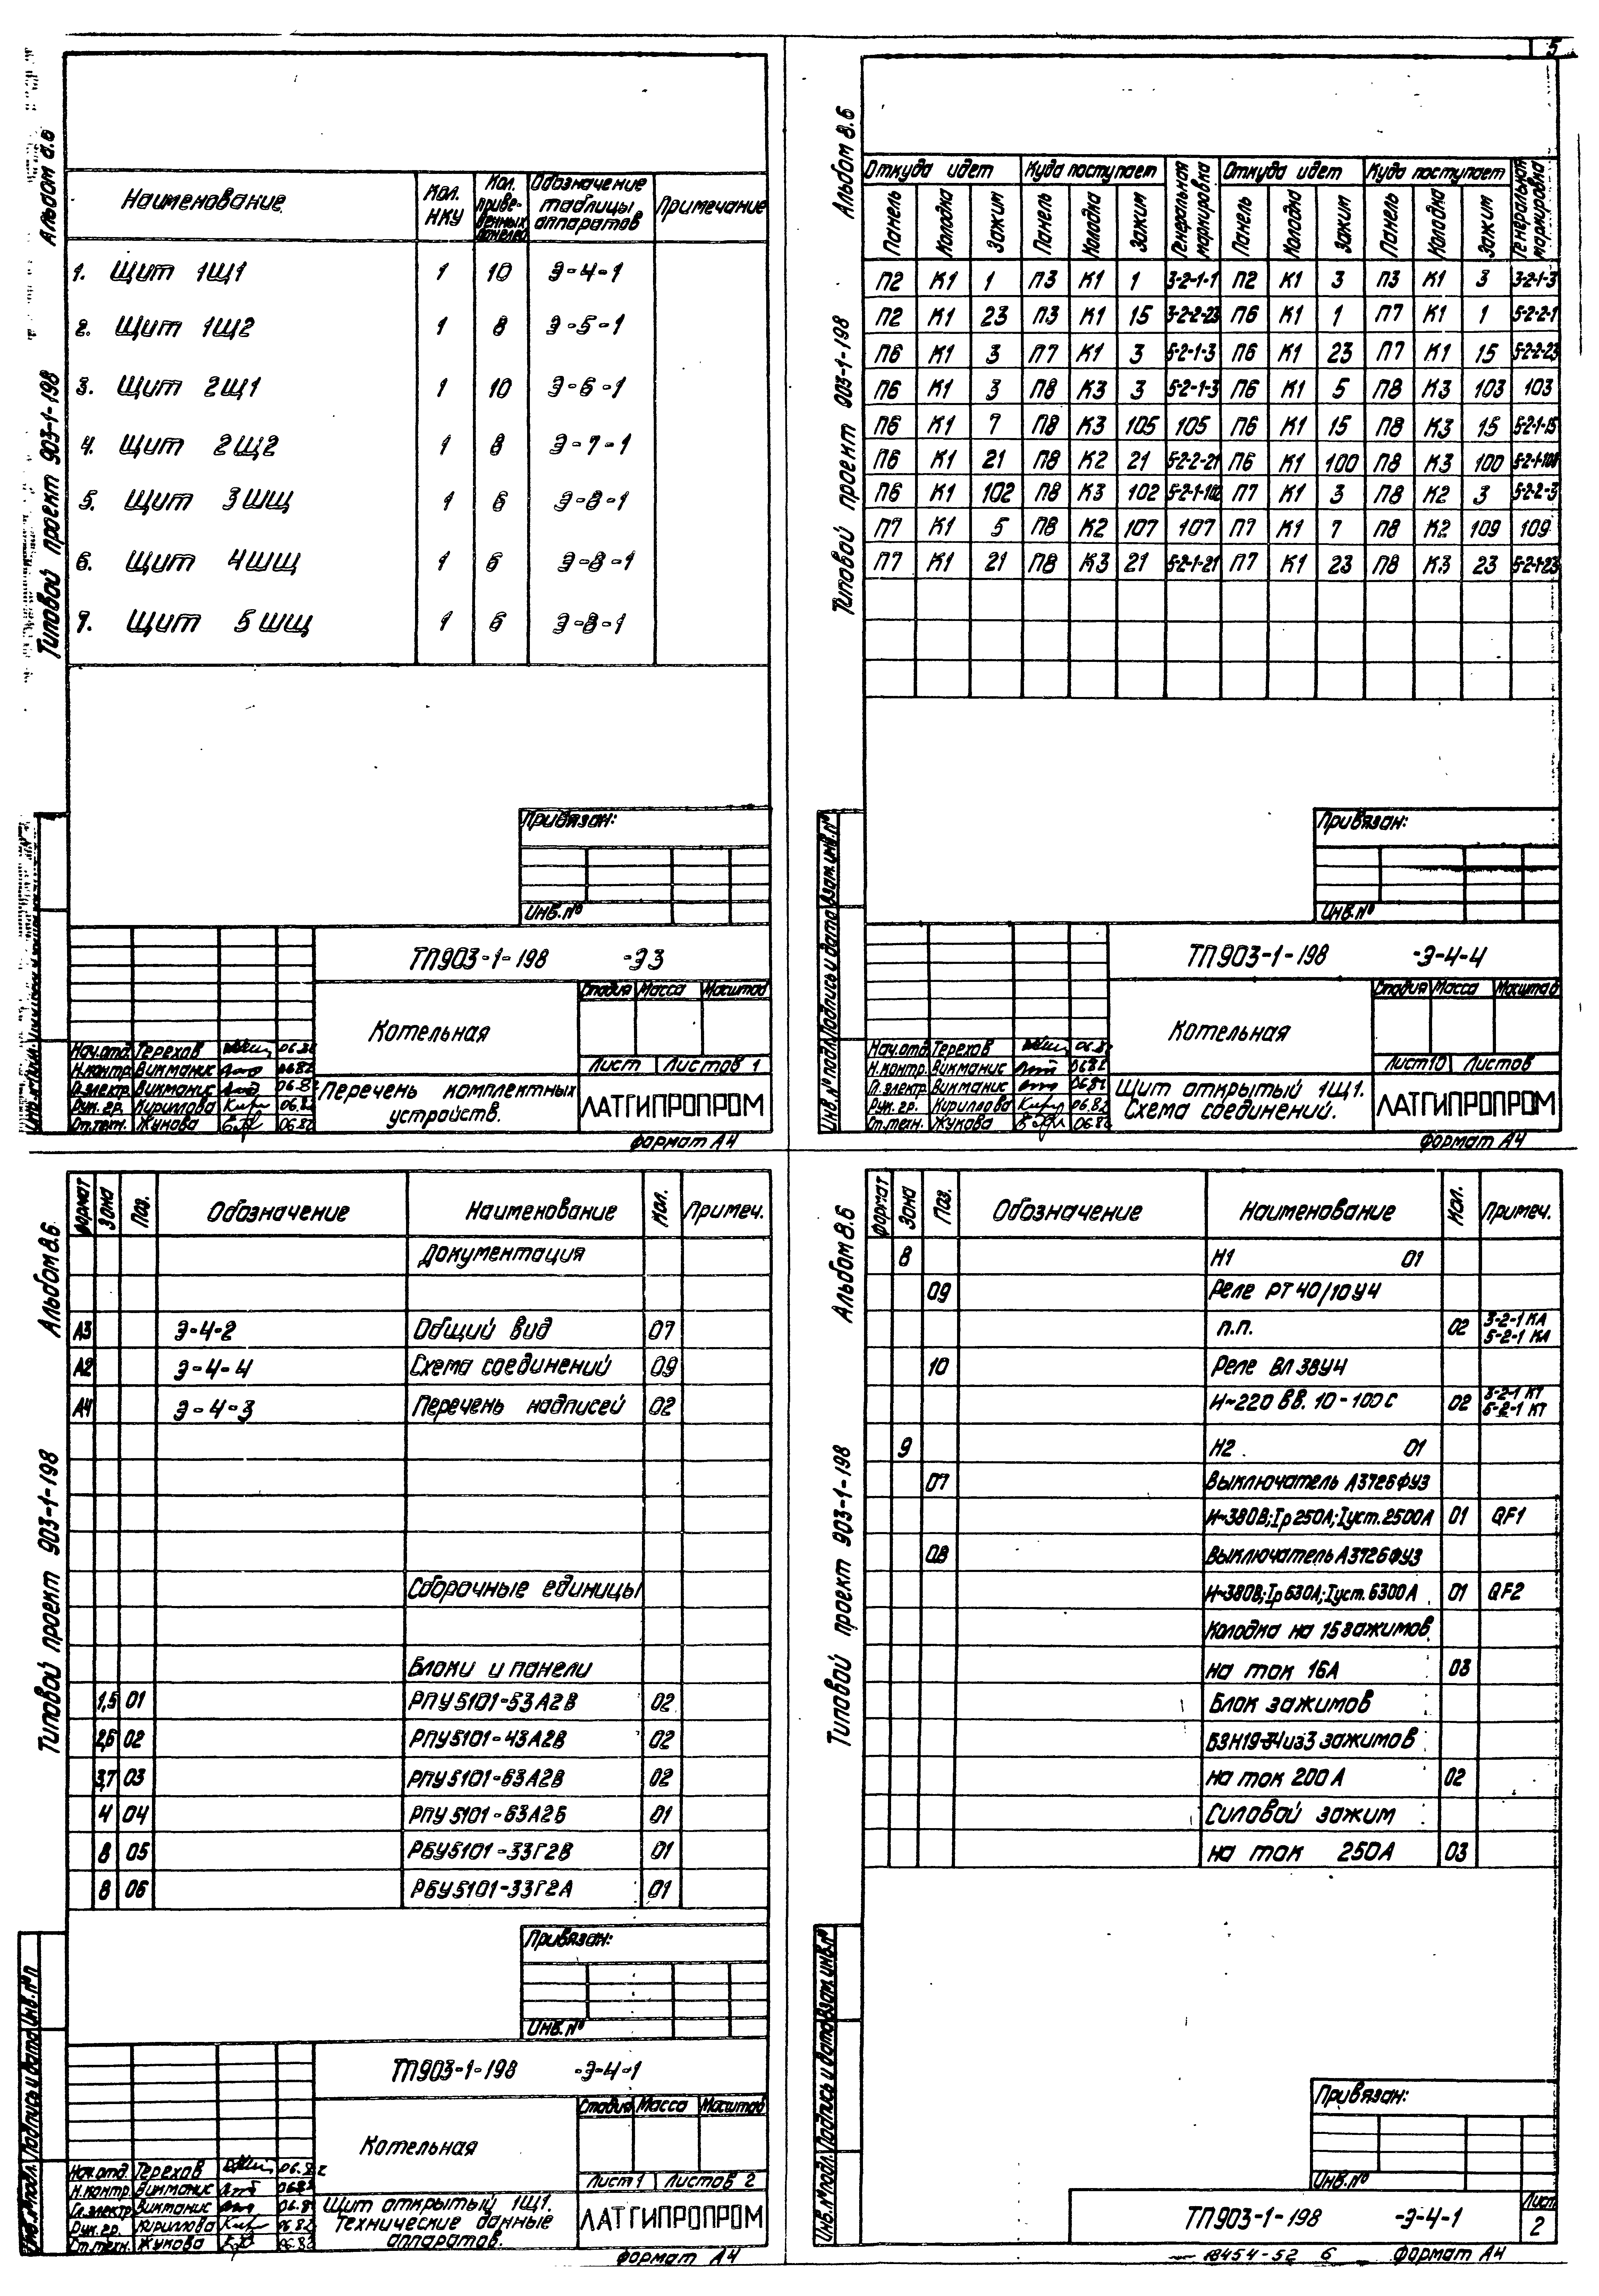 5
Альбом 8.6
Типовой проект 903-1-198
Наименование | Кол. НКУ | Кол. приведенных панелей | Обозначение таблицы аппаратов | Примечание
1. Щит 1Щ1 | 1 | 10 | Э-4-1
2. Щит 1Щ2 | 1 | 8 | Э-5-1
3. Щит 2Щ1 | 1 | 10 | Э-6-1
4. Щит 2Щ2 | 1 | 8 | Э-7-1
5. Щит 3ШЩ | 1 | 6 | Э-8-1
6. Щит 4ШЩ | 1 | 6 | Э-8-1
7. Щит 5ШЩ | 1 | 6 | Э-8-1
Привязан:
Инв.№
ТП903-1-198 -Э3
Котельная
Стадия Масса Масштаб
Лист Листов 1
Нач.отд. Терехов 06.82
Н.контр. Викманис 0682
Гл.электр. Викманис 06.82
Рук. гр. Кириллова 06.82
Ст.техн. Жукова 06.82
Перечень комплектных
устройств.
ЛАТГИПРОПРОМ
формат А4
Альбом 8.6
Типовой проект 903-1-198
Откуда идет | Куда поступает | Генеральная маркировка | Откуда идет | Куда поступает | Генеральная маркировка
Панель | Колодка | Зажим | Панель | Колодка | Зажим | Панель | Колодка | Зажим | Панель | Колодка | Зажим
П2 К1 1 П3 К1 1 3-2-1-1 П2 К1 3 П3 К1 3 3-2-1-3
П2 К1 23 П3 К1 15 3-2-2-23 П6 К1 1 П7 К1 1 5-2-2-1
П6 К1 3 П7 К1 3 5-2-1-3 П6 К1 23 П7 К1 15 5-2-2-23
П6 К1 3 П8 К3 3 5-2-1-3 П6 К1 5 П8 К3 103 103
П6 К1 7 П8 К3 105 105 П6 К1 15 П8 К3 15 5-2-1-15
П6 К1 21 П8 К2 21 5-2-2-21 П6 К1 100 П8 К3 100 5-2-1-100
П6 К1 102 П8 К3 102 5-2-1-102 П7 К1 3 П8 К2 3 5-2-2-3
П7 К1 5 П8 К2 107 107 П7 К1 7 П8 К2 109 109
П7 К1 21 П8 К3 21 5-2-1-21 П7 К1 23 П8 К3 23 5-2-1-23
Привязан:
Инв.№
Инв.№ подл. Подпись и дата Взам.инв.№
ТП903-1-198 -Э-4-4
Котельная
Стадия Масса Масштаб
Лист 10 Листов
Нач.отд. Терехов 06.82
Н.контр. Викманис 0682
Гл.электр. Викманис 06.82
Рук. гр. Кириллова 06.82
Ст.техн. Жукова 06.82
Щит открытый 1Щ1.
Схема соединений.
ЛАТГИПРОПРОМ
формат А4
Альбом 8.6
Типовой проект 903-1-198
Формат | Зона | Поз. | Обозначение | Наименование | Кол. | Примеч.
Документация
А3 Э-4-2 Общий вид 07
А2 Э-4-4 Схема соединений 09
А4 Э-4-3 Перечень надписей 02
Сборочные единицы
Блоки и панели
1,5 01 РПУ5101-53А2В 02
2,6 02 РПУ5101-43А2В 02
3,7 03 РПУ5101-63А2В 02
4 04 РПУ5101-63А2Б 01
8 05 РБУ5101-33Г2В 01
8 06 РБУ5101-33Г2А 01
Привязан:
Инв.№
Инв.№ подл. Подпись и дата Инв.№
ТП903-1-198 -Э-4-1
Котельная
Стадия Масса Масштаб
Лист 1 Листов 2
Нач.отд. Терехов 06.82
Н.контр. Викманис 0682
Гл.электр. Викманис 06.82
Рук. гр. Кириллова 06.82
Ст.техн. Жукова 06.82
Щит открытый 1Щ1.
Технические данные
аппаратов.
ЛАТГИПРОПРОМ
формат А4
Альбом 8.6
Типовой проект 903-1-198
Формат | Зона | Поз. | Обозначение | Наименование | Кол. | Примеч.
8 Н1 01
09 Реле РТ40/10У4
п.п. 02 3-2-1 КА 5-2-1 КА
10 Реле ВЛ38У4
И~220 вв. 10-100с 02 3-2-1 КТ 5-2-1 КТ
9 Н2. 01
07 Выключатель А3726ФУЗ
И~380В; Iр250А; Iуст.2500А 01 QF1
08 Выключатель А3726ФУЗ
И~380В; Iр630А; Iуст.6300А 01 QF2
Колодка на 15 зажимов
на ток 16А 03
Блок зажимов
БЗН19-34 из 3 зажимов
на ток 200А 02
Силовой зажим
на ток 250А 03
Привязан:
Инв.№
Инв.№ подл. Подпись и дата Взам.инв.№
ТП903-1-198 -Э-4-1
Лист
2
18454-52 6 формат А4